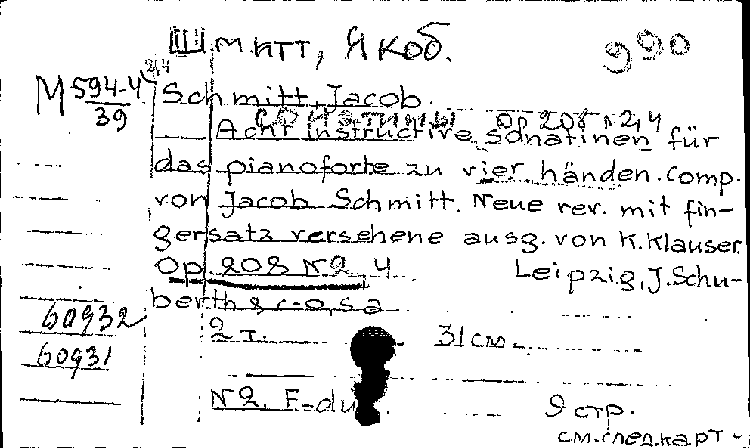 Шмитт, Якоб.
990
М 594-4/39
2,4
Schmitt, Jacob.
Сонатины Op 208 N 2,4
Acht instructive sonatinen für
das pianoforte zu vier händen. comp.
von Jacob Schmitt. Neue rev. mit fin-
gersatz versehene ausg. von K. Klauser.
Op 208 N 2, 4 Leipzig, J. Schu-
berth & c-o, s.a
60932
2 т. 31 см.
60931
N 2. F-du 9 стр.
см. след. карт.